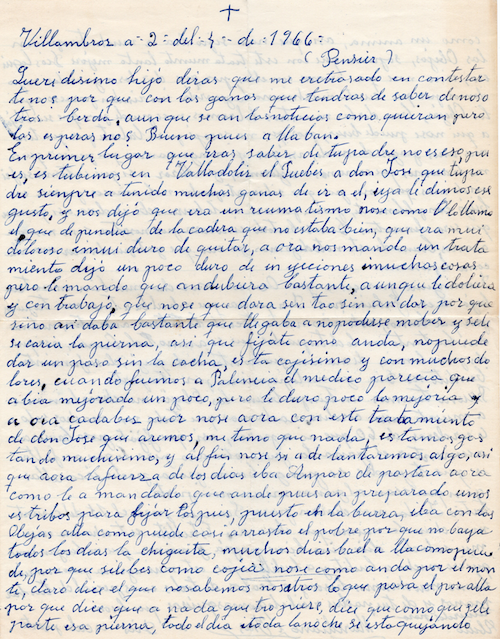 +
Villambroz a - 2 - del - 4 - de - 1966 -
( Pensier )
Queridisimo hijo diras que me eretrasado en contestar
tenos por que con las ganas que tendras de saber de noso
tros berda, aun que se an las noticias como quieran pero
las esperas no? Bueno pues alla ban.
En primer lugar que rras saber de tu padre no es eso, pu
es, es tubimos en Valladolir el Juebes a don Jose que tu pa
dre siempre a tenido muchas ganas de ir a el, y ya le dimos ese
gusto, y nos dijo que era un reumatismo nose como lo llamo
el que dependia de la cadera que no estaba bien, que era mui
doloroso e mui duro de quitar, a ora nos mando un trata
miento dijo un poco duro de in yecciones i muchas cosas
pero le mando que andubiera bastante, a unque le doliera
y con trabajo, que nose que dara sen tao sin andar por que
sino andaba bastante que llegaba a no poderse mober y sele
secaria la pierna, asi que fijate como anda, no puede
dar un paso sin la cacha, esta cojisimo y con muchos do
lores, cuando fuemos a Palencia el medico parecia que
abia mejorado un poco, pero le duro poco la mejoria y
a ora cadabes peor nose aora con este tratamiento
de don Jose que aremos, me temo que nada, estamos gas
tando muchisimo, y al fin nose si a de lantaremos algo, asi
que aora la fuerza de los dias iba Amparo de pastora aora
como le a mandado que ande pues an preparado unos
estribos para fijar los pies, puesto en la burra, iba con las
Obejas alla como puede casi arrastro el pobre por que no baya
todos los dias la chiguita, muchos dias ba el a lla como pue
de, por que sele bes como cojia nose como anda por el mon
te, claro dice el que nosabemos nosotros lo que pasa el por alla
por que dice que a nada que tro piere, dice que como que sele
parte esa pierna, todo el dia e toda la noche se esta quejando